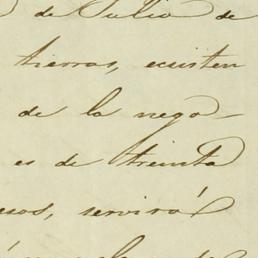 de Julio de
tierras, ecsisten
de la nego-
es de treinta
esos, servirá